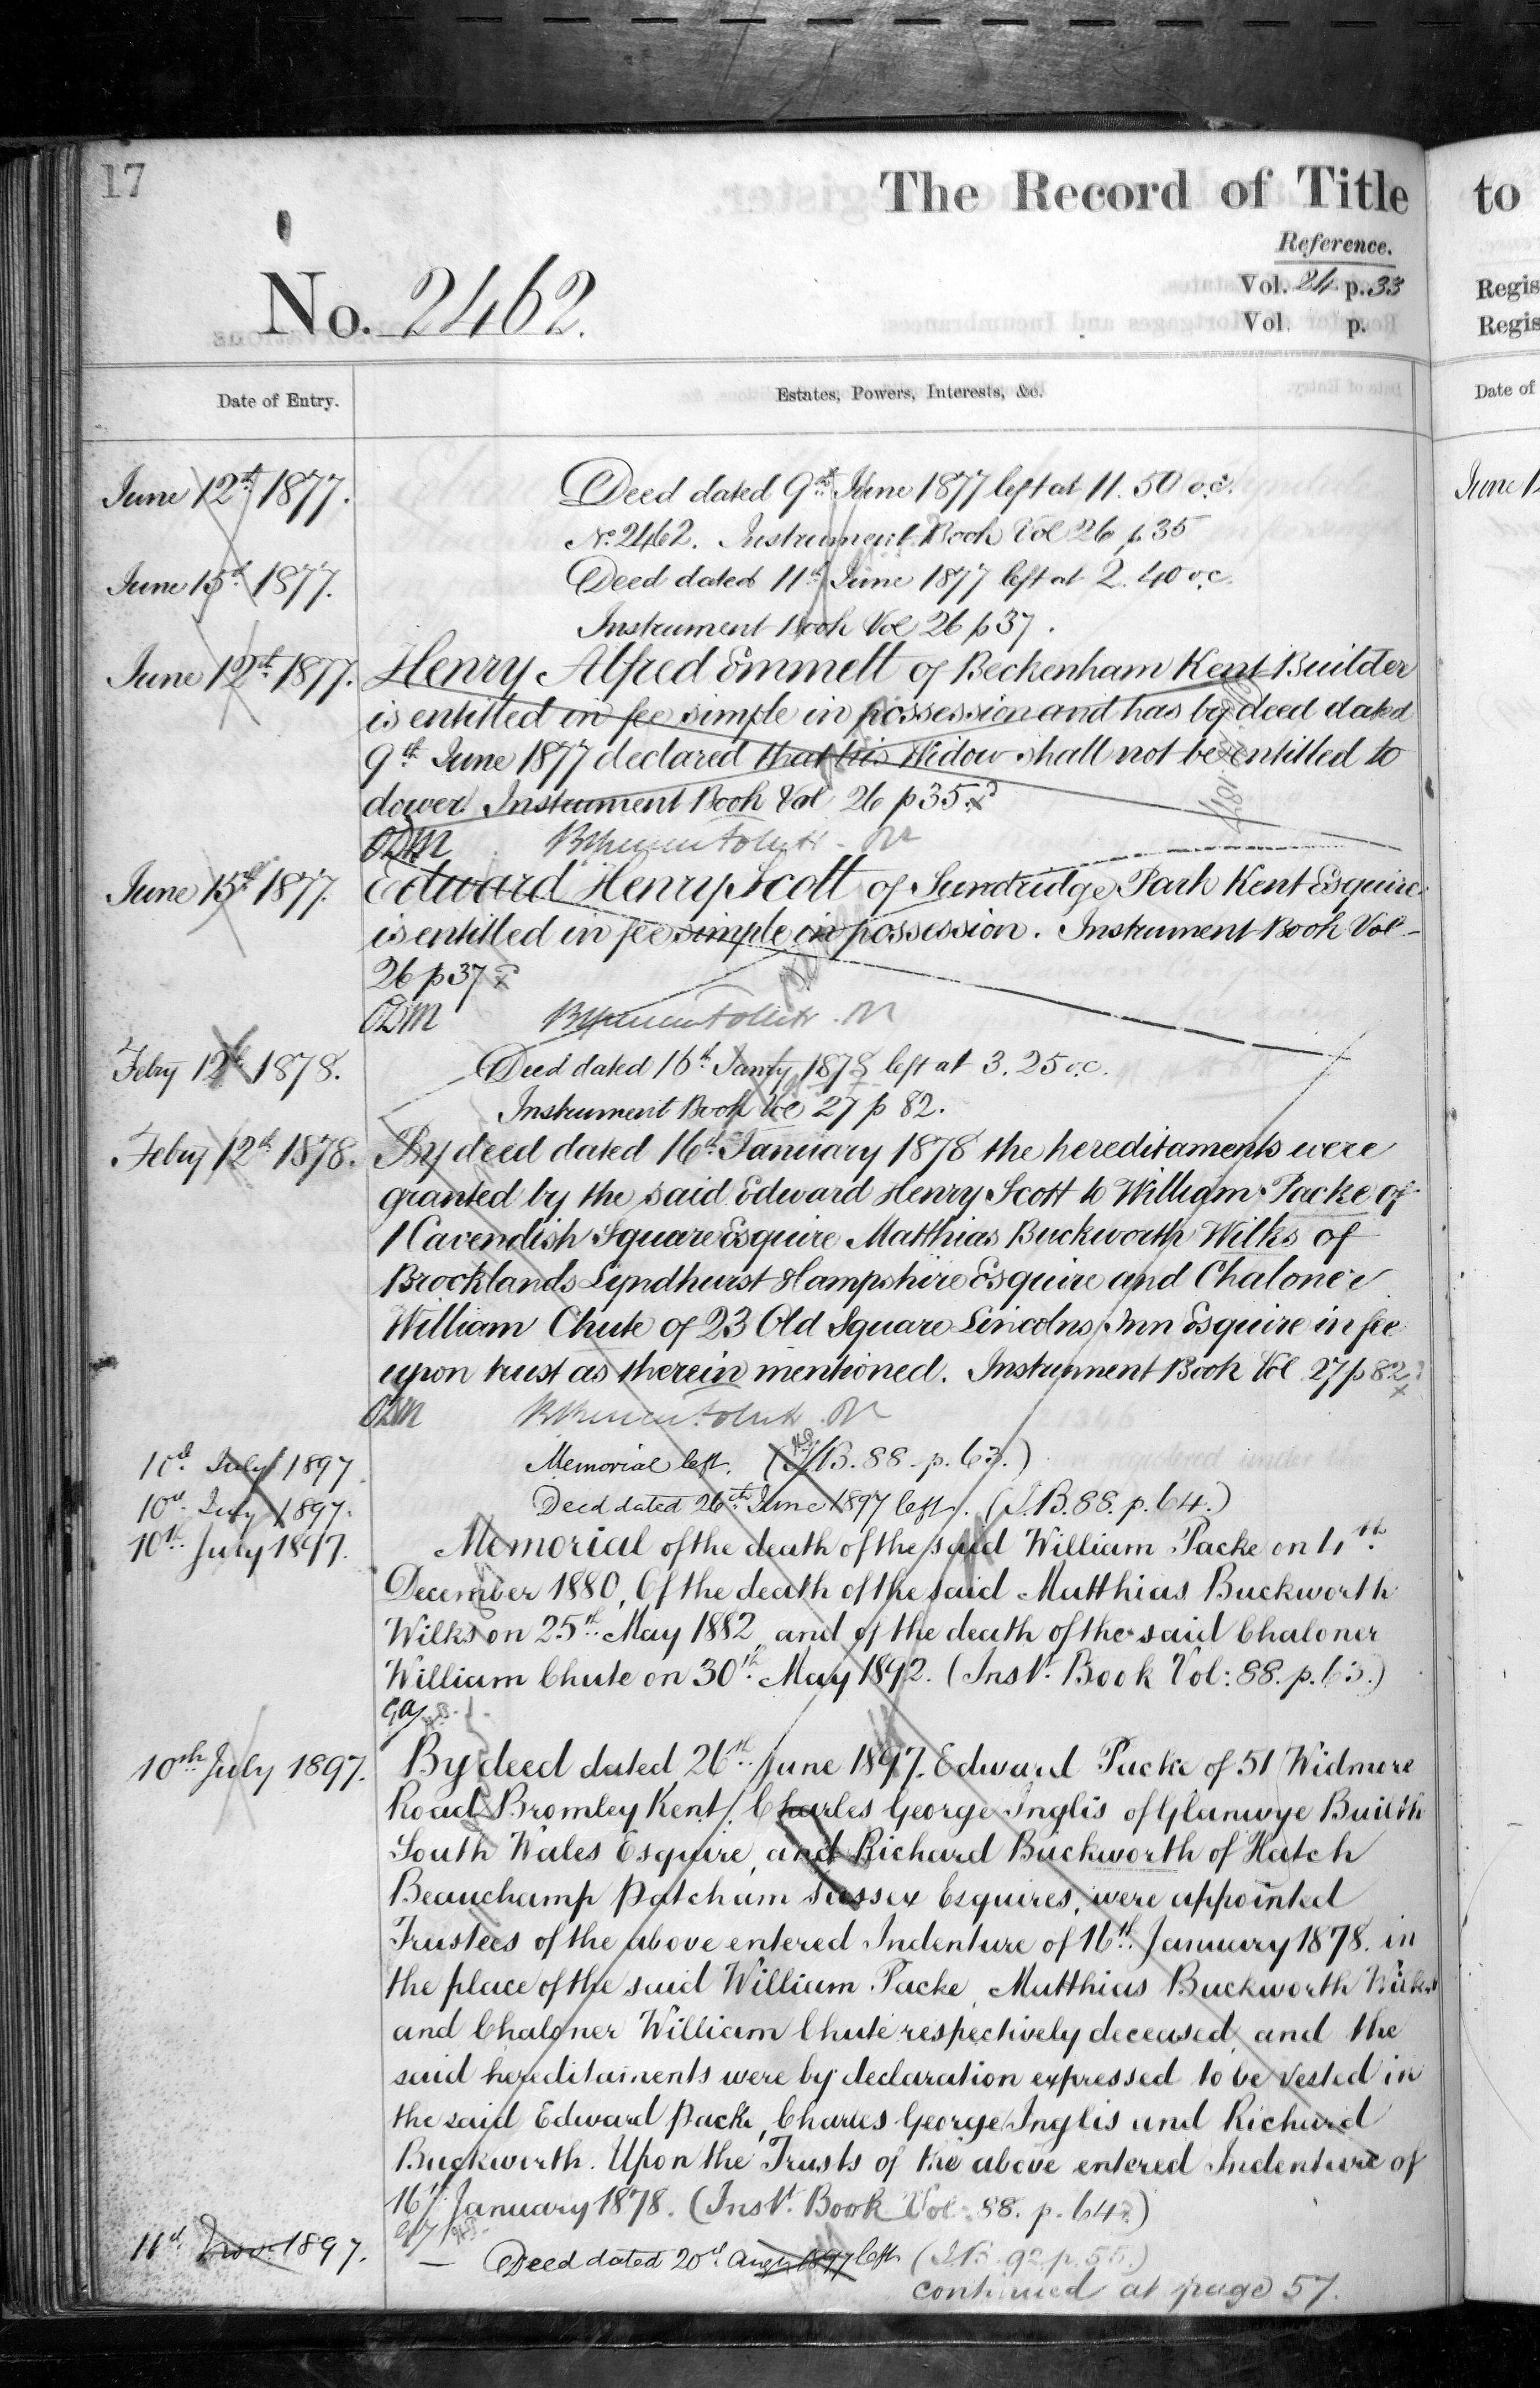 17
The Record of Title
to
Reference.
Vol. 24 p. 33
Regis
No. 2462.
Vol. p.
Regis
Date of Entry.
Estates, Powers, Interests, &c.
Date of
June 12th 1877.
Deed dated 9th June 1877 left at 11.50 o.c.
June 1
No. 2462. Instrument Book Vol 26 p 35
June 15th 1877.
Deed dated 11th June 1877 left at 2.40 o.c.
Instrument Book Vol 26 p 37.
June 12th 1877.
Henry Alfred Emmett of Beckenham Kent Builder
is entitled in fee simple in possession and has by deed dated
9th June 1877 declared that his Widow shall not be entitled to
dower. Instrument Book Vol 26 p 35.
ODM
June 15th 1877.
Edward Henry Scott of Sundridge Park Kent Esquire
is entitled in fee simple in possession. Instrument Book Vol
26 p 37
ODM
Feby 12th 1878.
Deed dated 16th Jany 1878 left at 3.25 o.c.
Instrument Book Vol 27 p 82.
Feby 12th 1878.
By deed dated 16th January 1878 the hereditaments were
granted by the said Edward Henry Scott to William Packe of
1 Cavendish Square Esquire Matthias Buckworth Wilks of
Brocklands Lyndhurst Hampshire Esquire and Chaloner
William Chute of 23 Old Square Lincolns Inn Esquire in fee
upon trust as therein mentioned. Instrument Book Vol 27 p 82
ODM
10th July 1897.
Memorial left. (I.B. 88. p. 63.)
10th July 1897.
Deed dated 26th June 1897 left. (I.B. 88. p. 64.)
10th July 1897.
Memorial of the death of the said William Packe on
December 1880, Of the death of the said Matthias Buckworth
Wilks on 25th May 1882, and of the death of the said Chaloner
William Chute on 30th May 1892. (Inst. Book Vol: 88. p. 63.)
10th July 1897.
By deed dated 26th June 1897. Edward Packe of 51 Widmore
Road Bromley Kent, Charles George Inglis of Glanwye Builth
South Wales Esquire, and Richard Buckworth of Hatch
Beauchamp Patcham Sussex Esquires, were appointed
Trustees of the above entered Indenture of 16th January 1878. in
the place of the said William Packe, Matthias Buckworth Wilks
and Chaloner William Chute respectively deceased, and the
said hereditaments were by declaration expressed to be vested in
the said Edward Packe, Charles George Inglis and Richard
Buckworth. Upon the Trusts of the above entered Indenture of
16th January 1878. (Inst. Book Vol: 88. p. 64.)
11th Nov. 1897.
Deed dated 20th Augt 1897 left (I.B. 92. p. 55.)
continued at page 57.